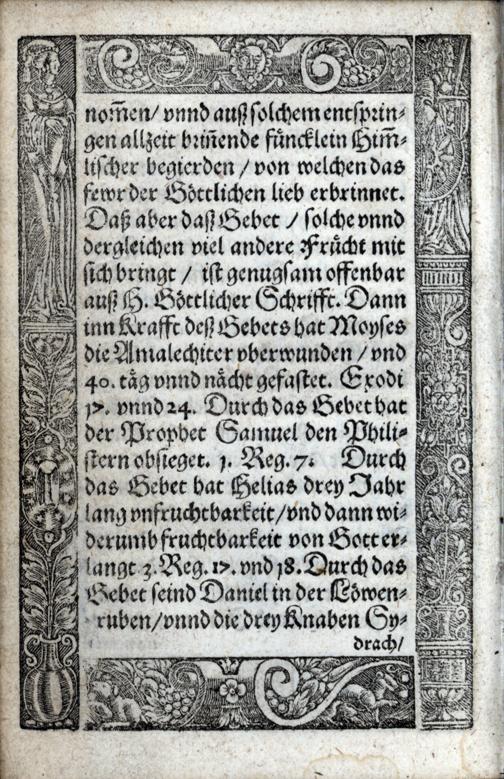 nom̃en/ vnnd auß solchem entsprin-
gen allzeit briñende füncklein Him̃-
lischer begierden / von welchen das
fewr der Göttlichen lieb erbrinnet.
Daß aber daß Gebet / solche vnnd
dergleichen viel andere Frücht mit
sich bringt / ist genugsam offenbar
auß H. Göttlicher Schrifft. Dann
inn Krafft deß Gebets hat Moyses
die Amalechiter vberwunden / vnd
40. täg vnnd nächt gefastet. Exodi
17. vnnd 24. Durch das Gebet hat
der Prophet Samuel den Phili-
stern obsieget. 1. Reg. 7. Durch
das Gebet hat Helias drey Jahr
lang vnfruchtbarkeit/vnd dann wi-
derumb fruchtbarkeit von Gott er-
langt 3. Reg. 17. vnd 18. Durch das
Gebet seind Daniel in der Löwen-
ruben/vnnd die drey Knaben Sy-
drach/